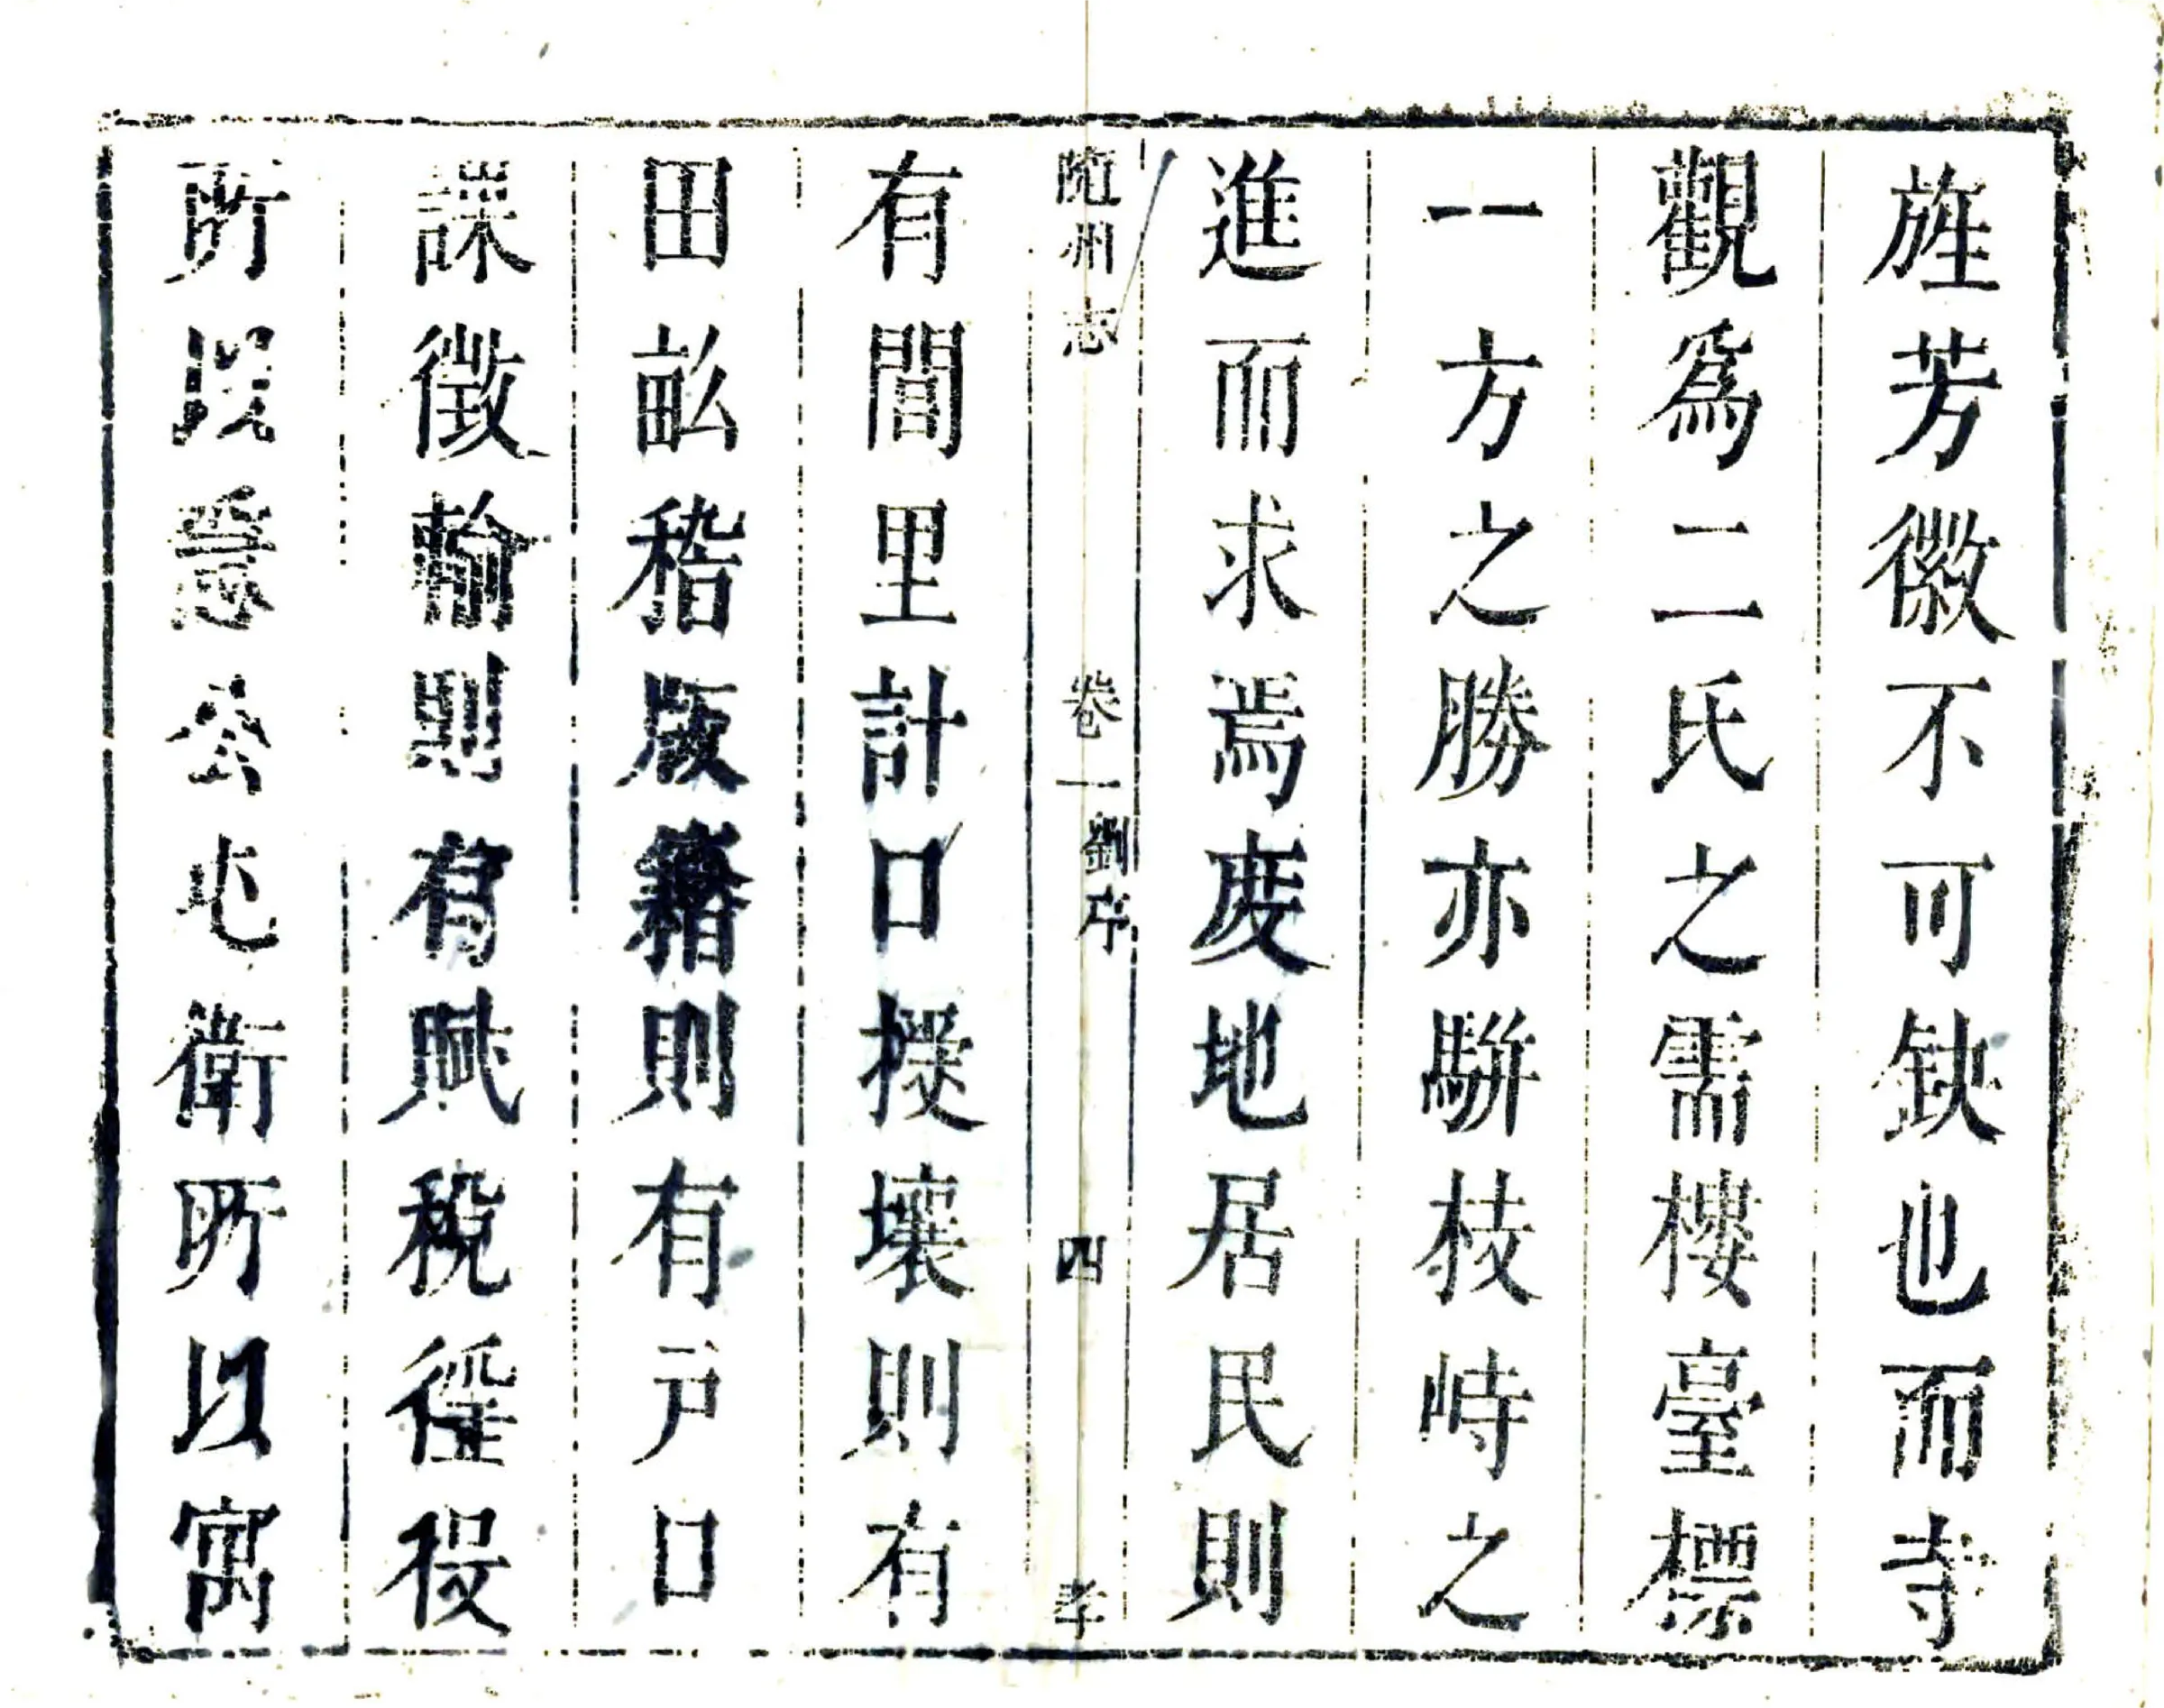 旌芳徽不可缺也而寺
觀爲二氏之需樓臺標
一方之勝亦駢枝峙之
進而求焉度地居民則
隨州志 卷一 劉序 四 孝
有閭里計口授壤則有
田畝稽版籍則有戸口
課徵輸則有賦稅徭役
所以急公屯衛所以寓